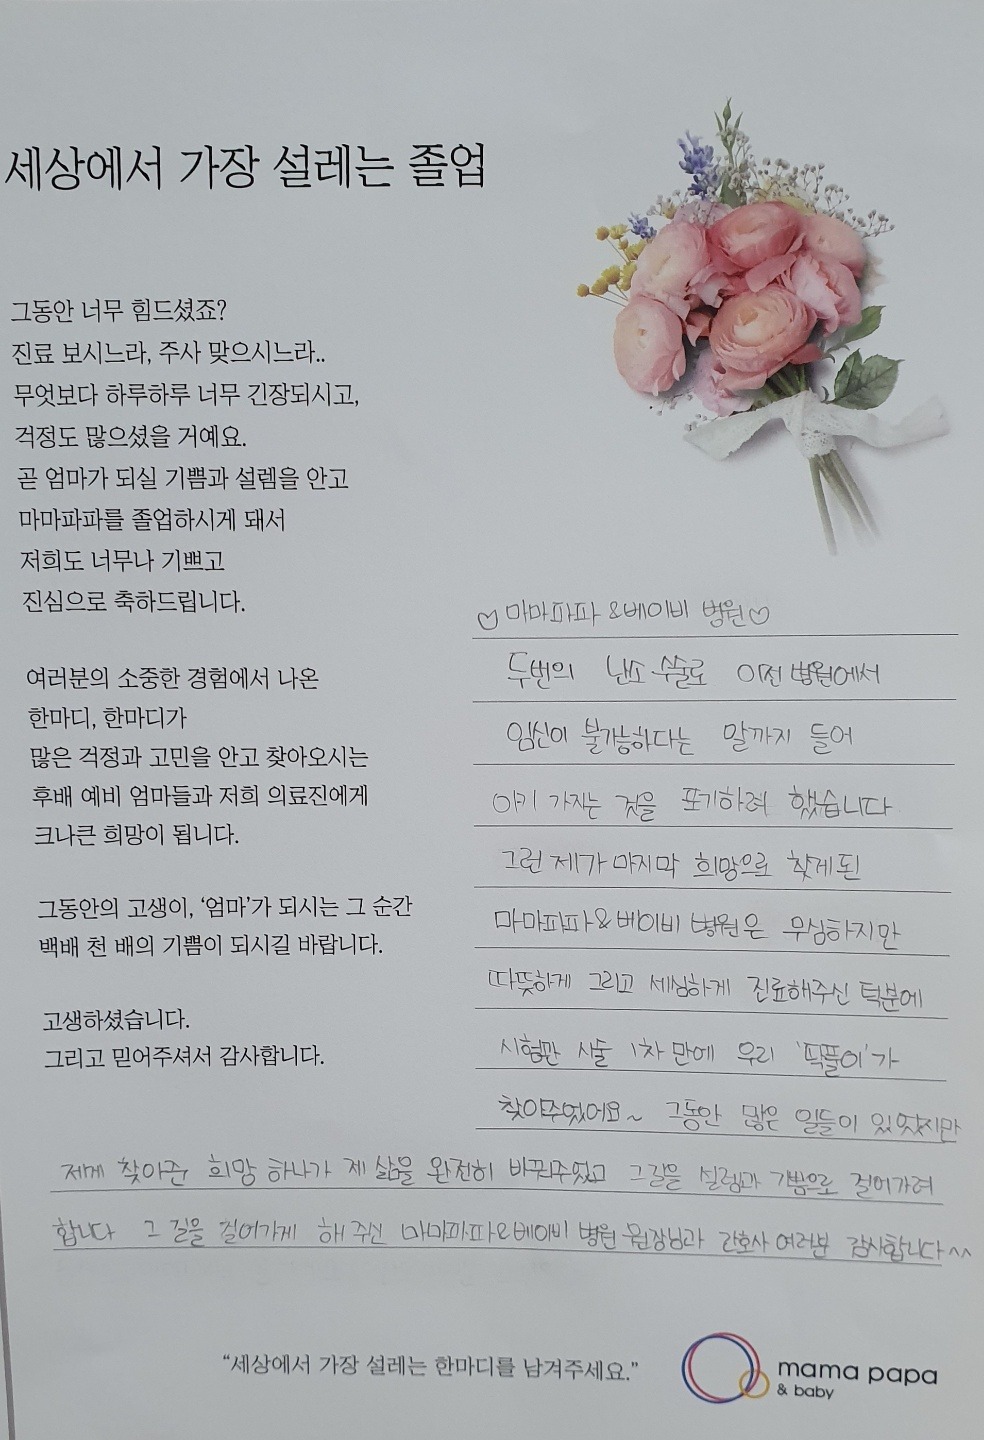 세상에서 가장 설레는 졸업
그동안 너무 힘드셨죠?
진료 보시느라, 주사 맞으시느라..
무엇보다 하루하루 너무 긴장되시고,
걱정도 많으셨을 거예요.
곧 엄마가 되실 기쁨과 설렘을 안고
마마파파를 졸업하시게 돼서
저희도 너무나 기쁘고
진심으로 축하드립니다.
여러분의 소중한 경험에서 나온
한마디, 한마디가
많은 걱정과 고민을 안고 찾아오시는
후배 예비 엄마들과 저희 의료진에게
크나큰 희망이 됩니다.
그동안의 고생이, ‘엄마’가 되시는 그 순간
백배 천 배의 기쁨이 되시길 바랍니다.
고생하셨습니다.
그리고 믿어주셔서 감사합니다.
♡마마파파&베이비 병원♡
두번의 난소 수술로 이전 병원에서
임신이 불가능하다는 말까지 들어
아기 가지는 것을 포기하려 했습니다
그런 제가 마지막 희망으로 찾게된
마마파파&베이비 병원은 무심하지만
따뜻하게 그리고 세심하게 진료해주신 덕분에
시험관 시술 1차만에 우리 '뚝뚤이'가
찾아주었어요~ 그동안 많은 일들이 있었지만
제게 찾아온 희망 하나가 제 삶을 완전히 바꿔주었고 그 길을 설렘과 기쁨으로 걸어가려
합니다 그 길을 걸어가게 해주신 마마파파&베이비 병원 원장님과 간호사 여러분 감사합니다^^
“세상에서 가장 설레는 한마디를 남겨주세요.”
mama papa
& baby